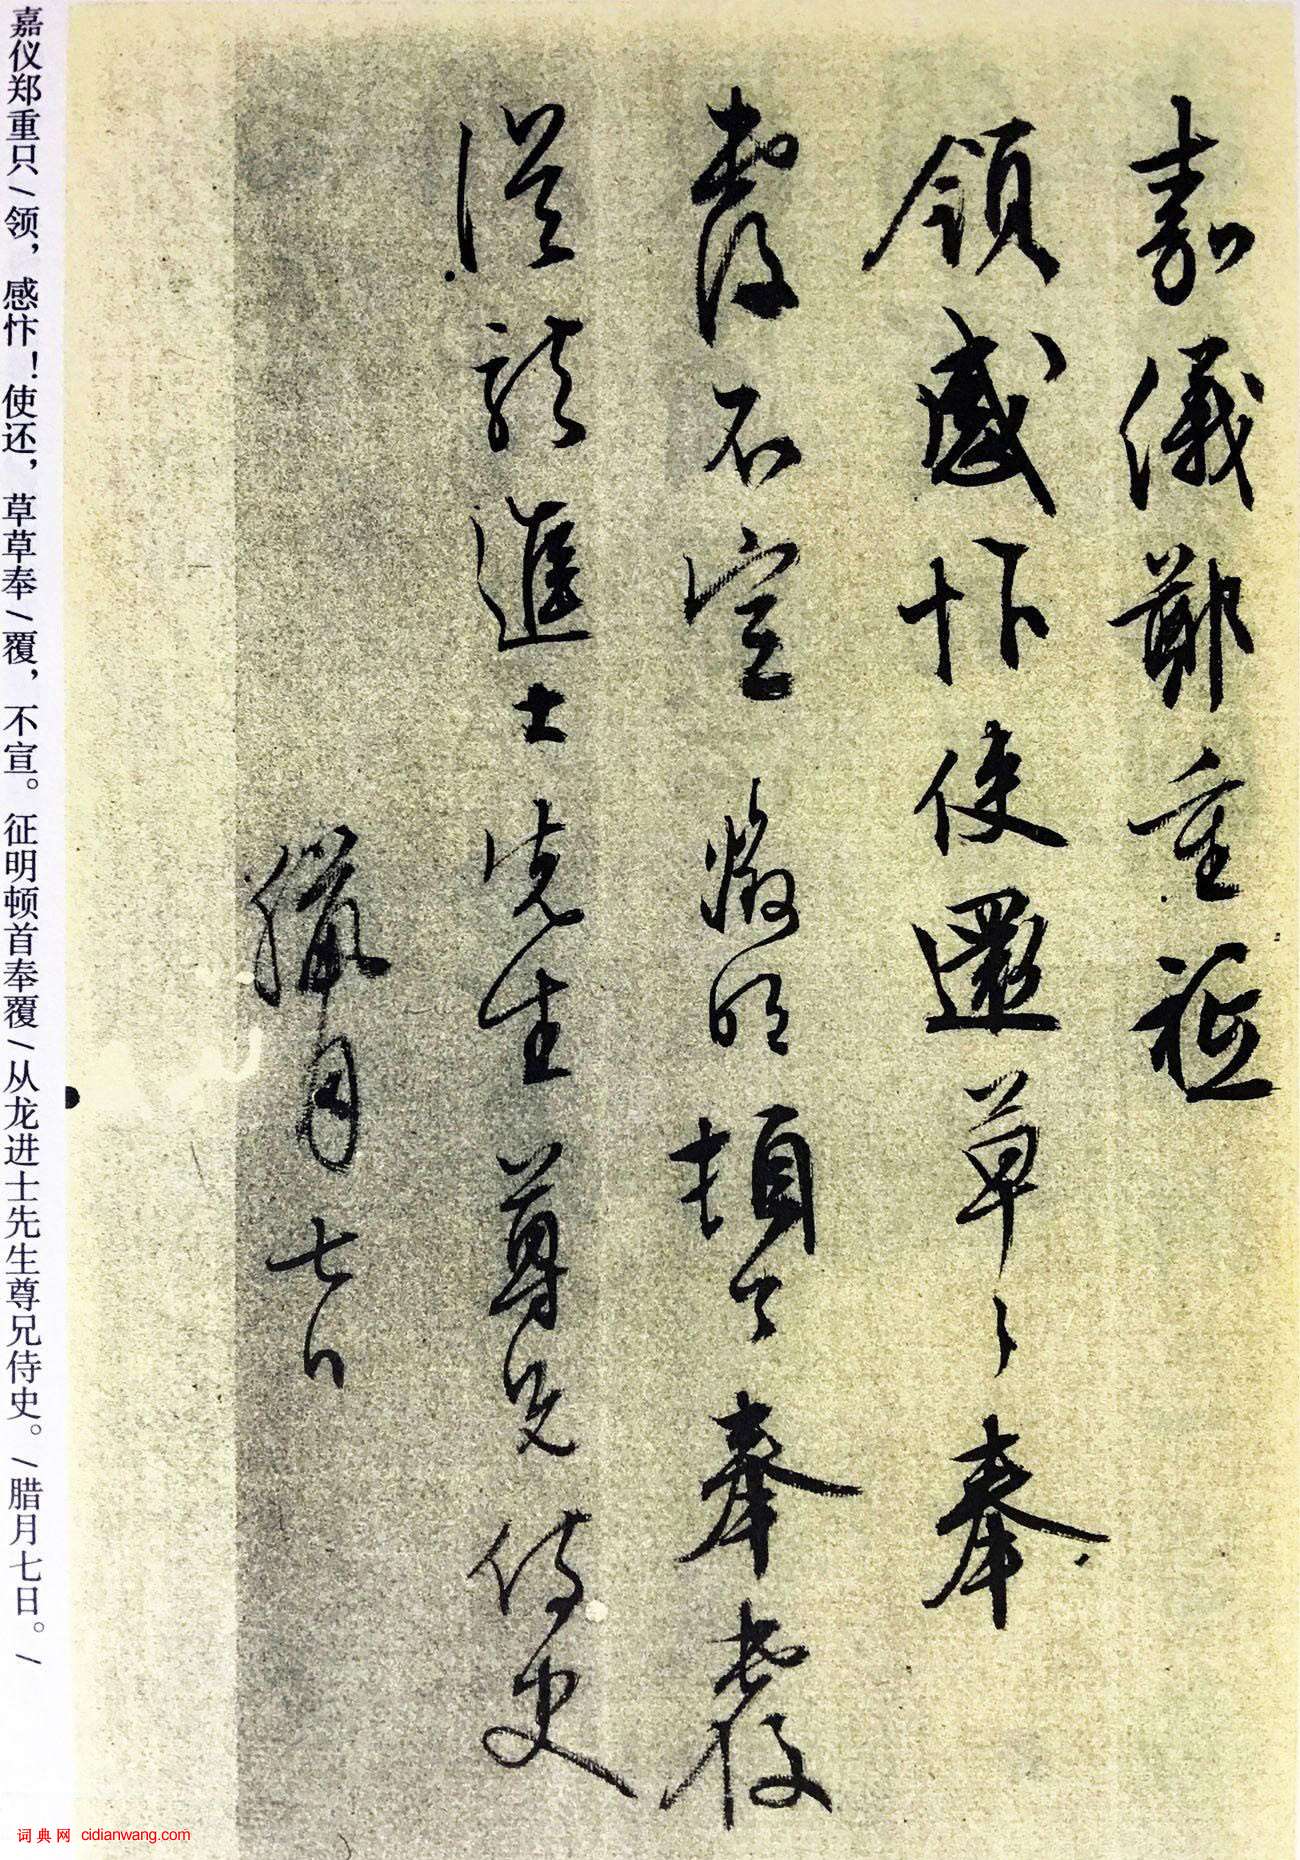 嘉儀鄭重祗
領感忭使還草〻奉
覆不宣徵明頓首奉覆
從龍進士先生尊兄侍史
臘月七日
嘉仪郑重只/领，感忭！使还，草草奉/覆，不宣。征明顿首奉覆/从龙进士先生尊兄侍史。/腊月七日。/
词典网 cidianwang.com